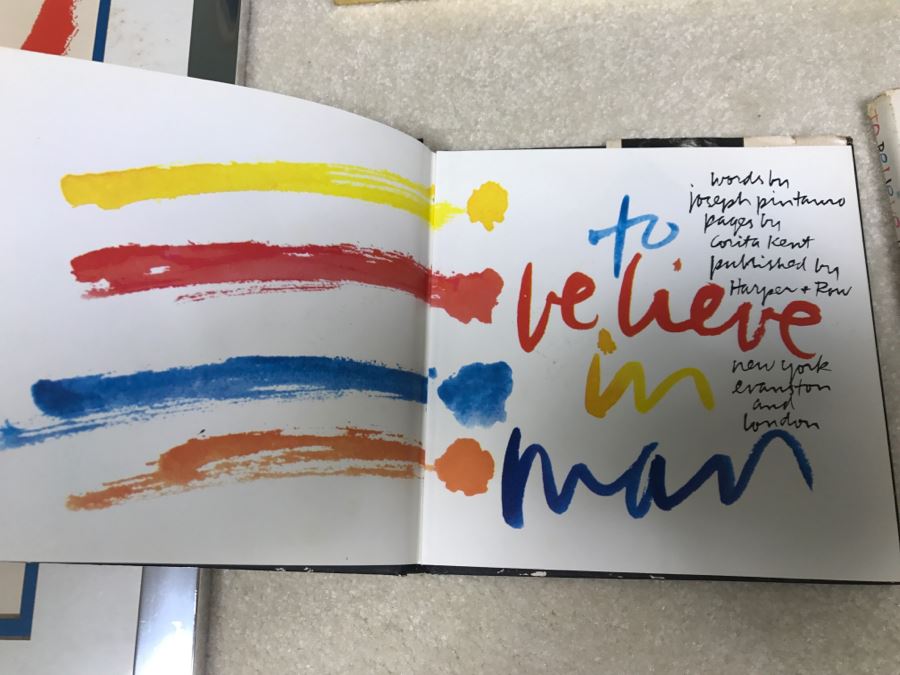 to
believe
in
man
words by
joseph pintauro
pages by
corita kent
published by
Harper + Row
new york
evanston
and
london